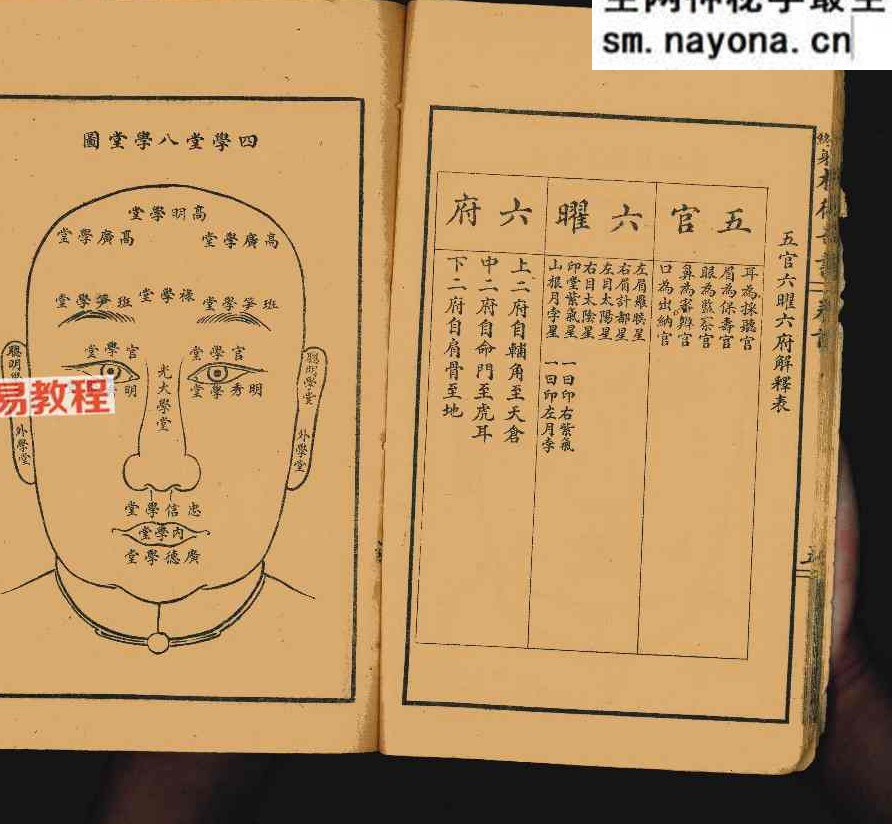 sm.nayona.cn
五官六曜六府解釋表
五官
耳為採聽官
眉為保壽官
眼為監察官
鼻為審辨官
口為出納官
六曜
左眉羅睺星
右眉計都星
左目太陽星
右目太陰星
印堂紫氣星 一曰印右紫氣
山根月孛星 一曰印左月孛
六府
上二府自輔角至天倉
中二府自命門至虎耳
下二府自肩骨至地
四學堂八學堂圖
高明學堂
高廣學堂
高廣學堂
班笋學堂
祿學堂
班笋學堂
官學堂
官學堂
明秀學堂
明
光大學堂
聰明學堂
聰明
外學堂
外學堂
忠信學堂
內學堂
廣德學堂
易教程